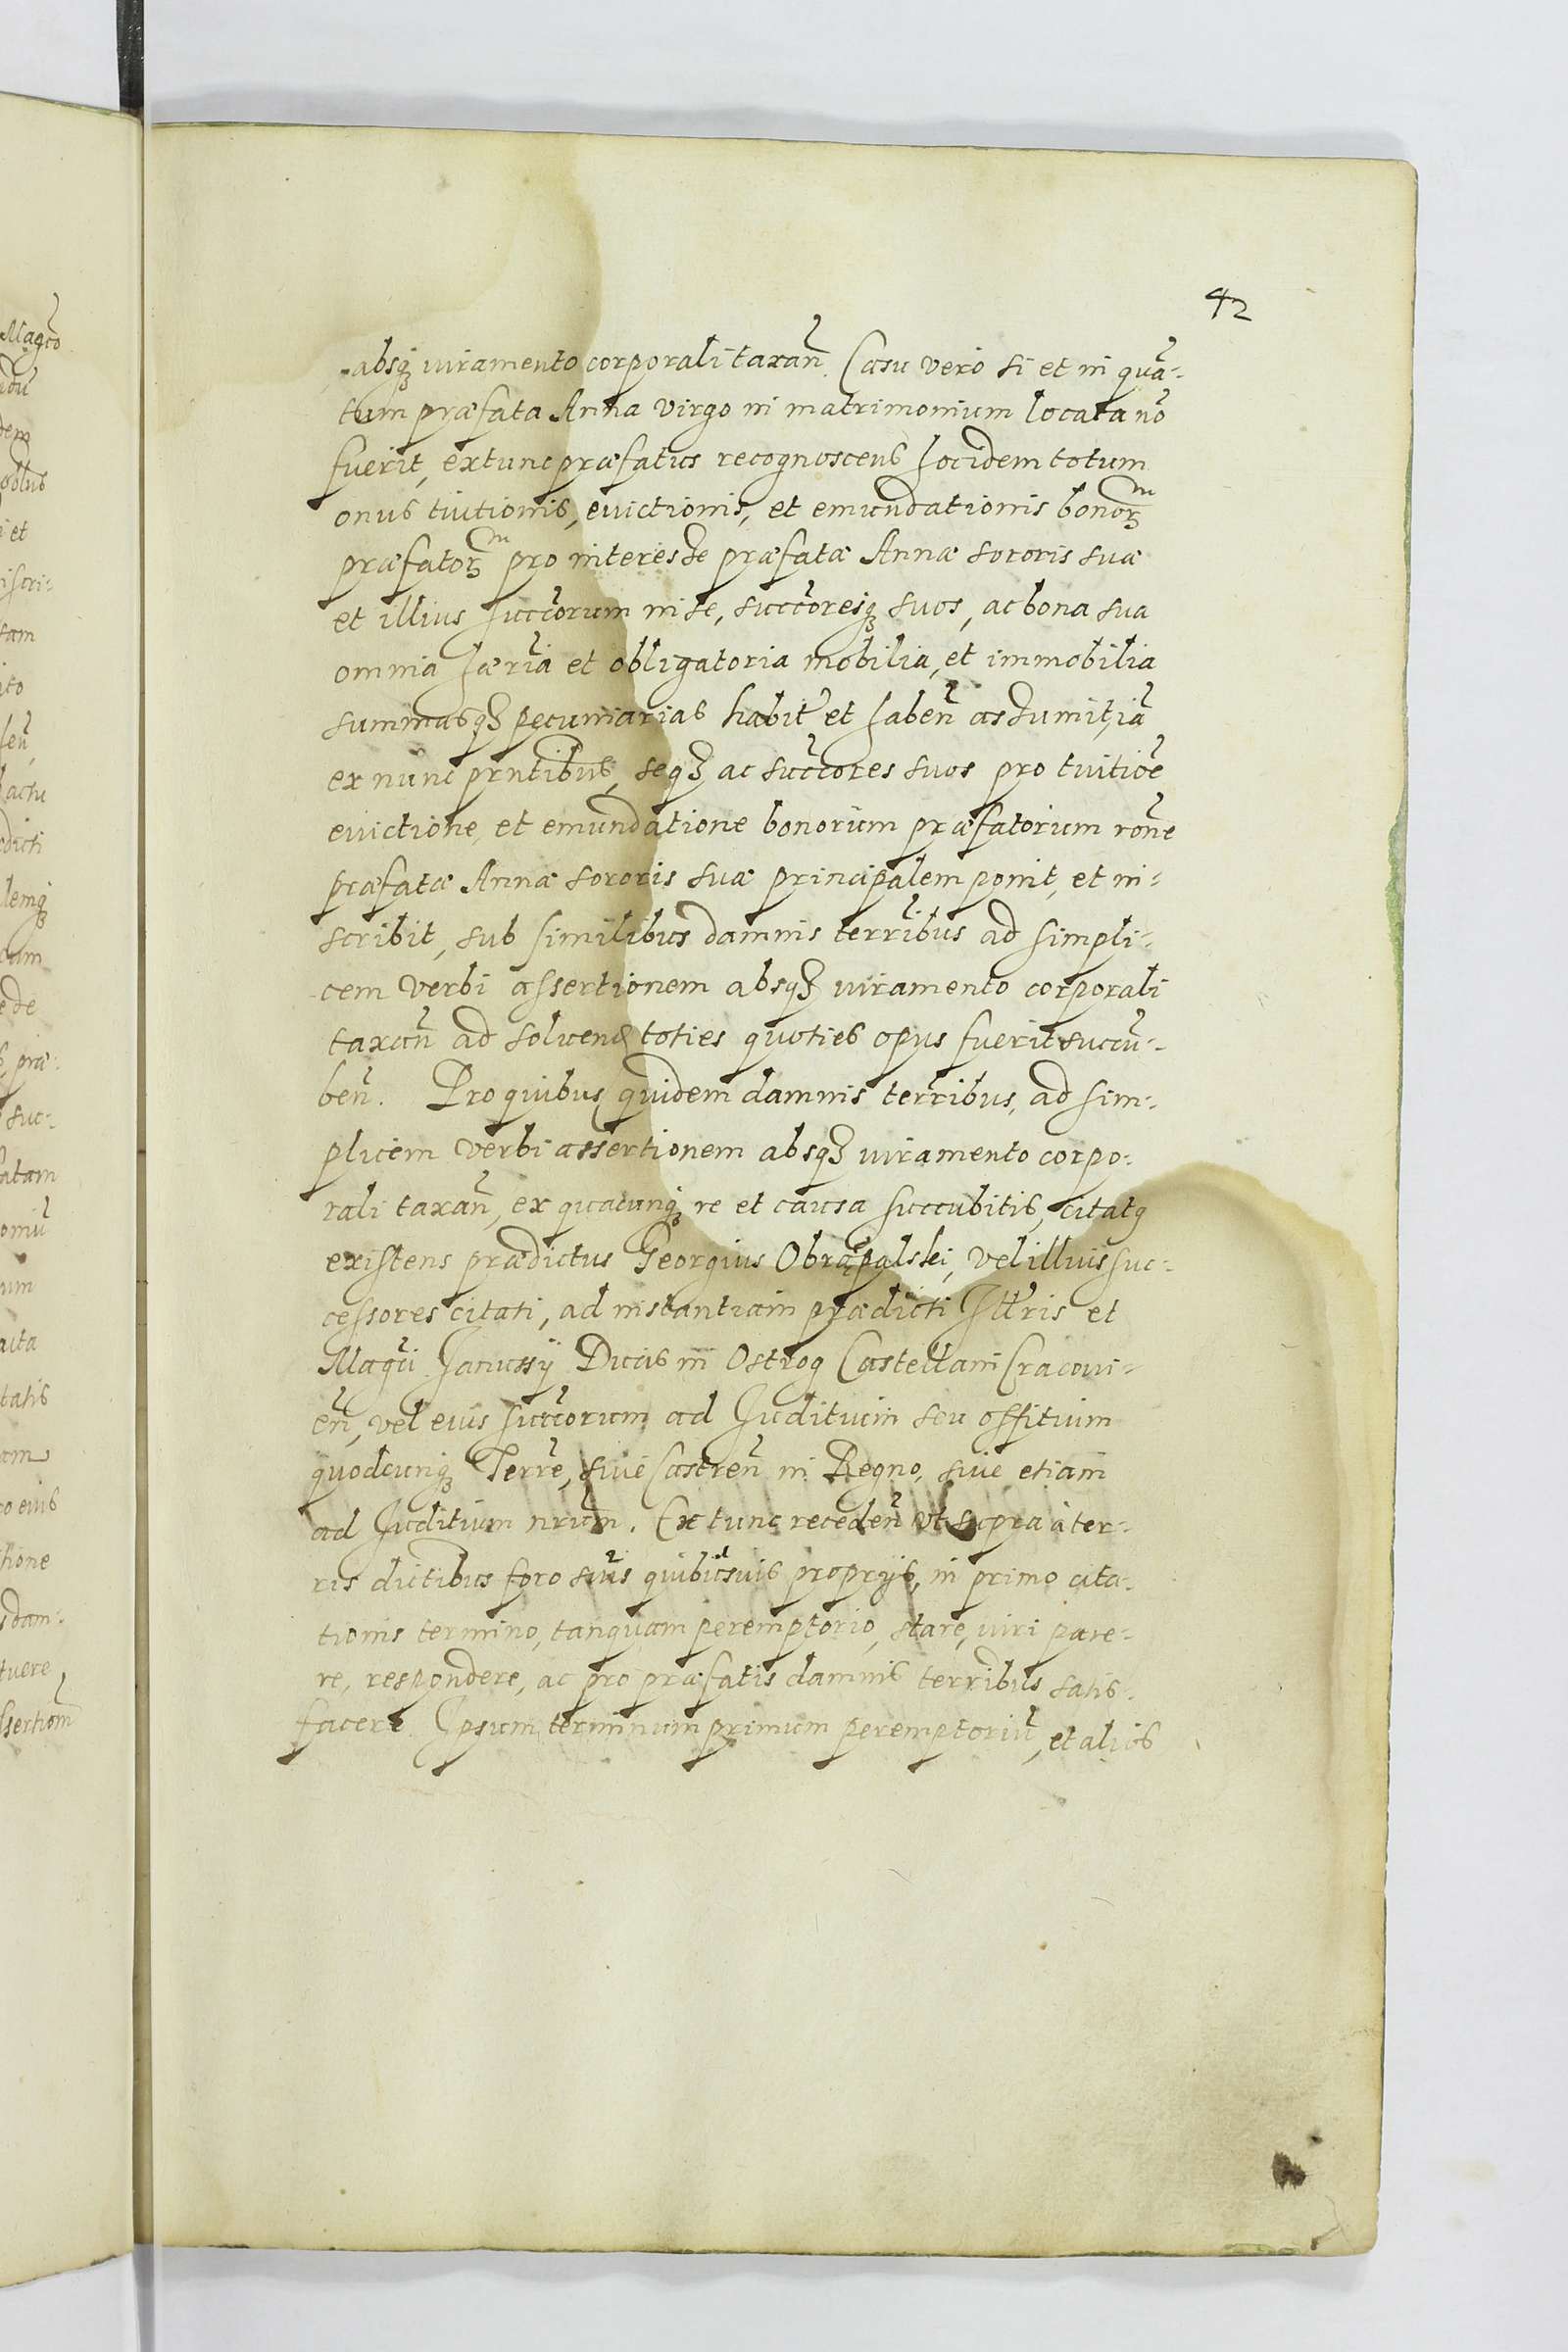 42
absq₃ iuramento corporali taxan̄. Casu vero si et in quā-
tum præfata Anna virgo in matrimonium locata nō
fuerit, extunc præfatus recognoscens hocidem totum
onus tiutionis, euictionis, et emundationis bonoꝝᵐ
præfatoꝝᵐ pro interesse præfatæ Annæ sororis suæ
et illius succ̄orum in se, succ̄oresq₃ suos, ac bona sua
omnia hær̄ia et obligatoria mobilia, et immobilia
summasq₃ pecuniarias habit̄ et haben̄ assumit, iā
ex nunc prn̄tibus, seq₃ ac succ̄ores suos pro tuitiōe
euictione, et emundatione bonorum præfatorum rōne
præfatæ Annæ sororis suæ principalem ponit, et in-
scribit, sub similibus damnis terr̄ibus ad simpli-
cem verbi assertionem absq₃ iuramento corporali
taxan̄ ad soluend toties quoties opus fuerit succū-
ben̄. Pro quibus quidem damnis terr̄ibus, ad sim-
plicem verbi assertionem absq₃ iuramento corpo-
rali taxan̄, ex quacunq₃ re et causa succubitis, citatꝯ
existens prædictus Georgius Obrąpalski, vel illius suc-
cessores citati, ad instantiam prædicti Ill̄ris et
Magc̄i Janussÿ Ducis in Ostrog Castellani Cracoui-
en̄, vel eius succ̄orum ad Juditium seu offitium
quodcunq₃ Terr̄e, siue Castren̄ in Regno, siue etiam
ad Juditium nrūm. Extunc receden̄ vt supra à ter-
ris dictibus foro suīs quibūsuis proprÿs, in primo cita-
tionis termino, tanquam peremptorio, stare, iuri pare-
re, respondere, ac pro præfatis damnis terribus satis-
facere. Ipsum terminum primum peremptoriū, et alios